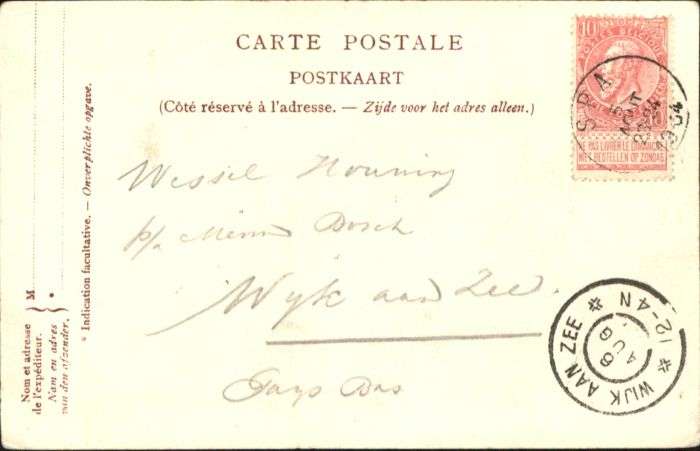 CARTE POSTALE
POSTKAART
(Côté réservé à l'adresse. — Zijde voor het adres alleen.)
10
POSTES BELGIQUE
NE PAS LIVRER LE DIMANCHE
NIET BESTELLEN OP ZONDAG
SPA
AOUT
1904
Wessel
p/a Bosch
Wijk aan Zee.
Pays Bas
WIJK AAN ZEE
12-4N
6
AUG
* Indication facultative. — Onverplichte opgave.
M
*
Nom et adresse
de l'expéditeur.
Naam en adres
van den afzender.